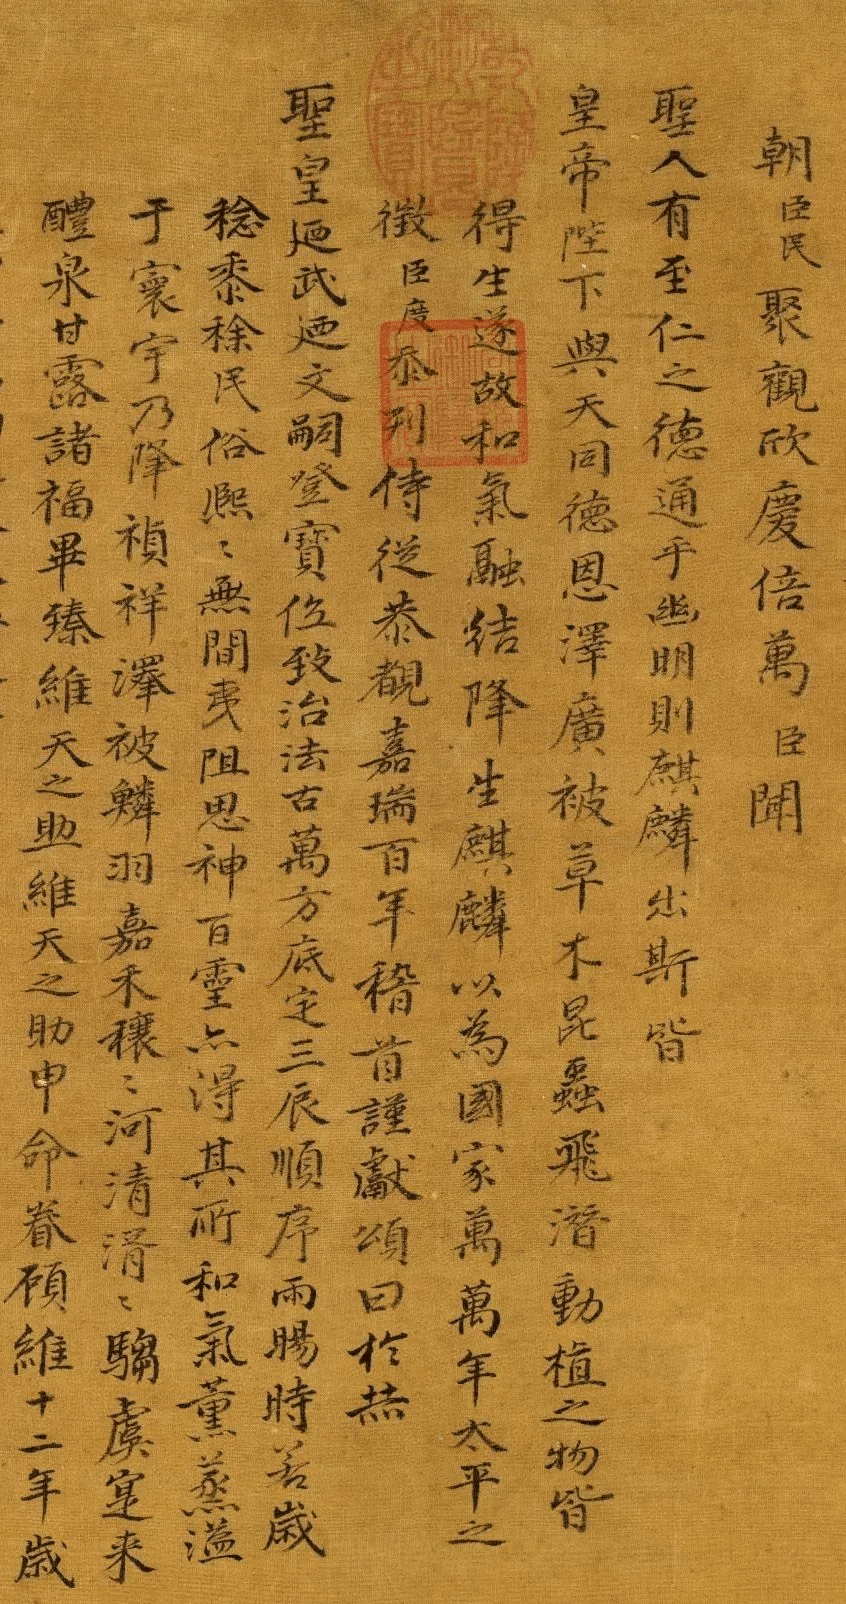 朝臣民聚觀欣慶倍萬臣聞
聖人有至仁之德通乎幽明則麒麟出斯皆
皇帝陛下與天同德恩澤廣被草木昆蟲飛潛動植之物皆
得生遂故和氣融結降生麒麟以為國家萬萬年太平之
徵臣度忝列侍從恭覩嘉瑞百年稽首謹獻頌曰於赫
聖皇迺武迺文嗣登寶位致治法古萬方底定三辰順序雨暘時若歲
稔黍稌民俗熈〻無間夷阻思神百靈亦得其所和氣薰蒸溢
于寰宇乃降禎祥澤被鱗羽嘉禾穰〻河清湑〻騶虞寔来
醴泉甘露諸福畢臻維天之助維天之助申命眷顧維十二年歳